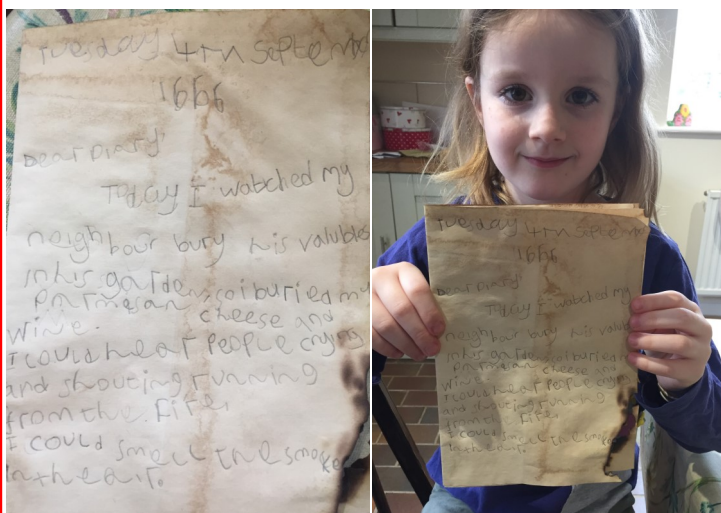 Tuesday 4Th September
1666
Dear Diary
Today I watched my
neighbour bury his valubles
in his garden, so i buried my
parmesan cheese and
wine.
I could hear people crying
and shouting running
from the fire,
I could smell the smoke
in the air.
Tuesday 4Th September
1666
Dear Diary
Today I watched my
neighbour bury his valuble
in his garden, so i buried m
parmesan cheese and
wine.
I could hear people crying
and shouting running
from the fire,
I could smell the smoke
in the air.